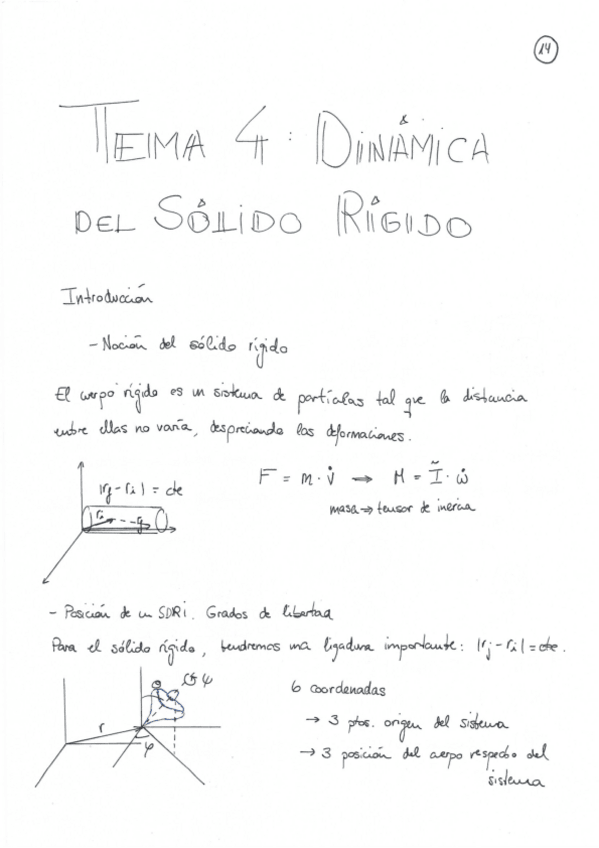 14
TEMA 4: DINÁMICA
DEL SÓLIDO RÍGIDO
Introducción
- Noción del sólido rígido
El cuerpo rígido es un sistema de partículas tal que la distancia
entre ellas no varía, despreciando las deformaciones.
|rj - ri| = cte
F = m · v̇ → M = Ĩ · ω̇
ri
rj
masa → tensor de inercia
- Posición de un SDRi. Grados de libertad
Para el sólido rígido, tendremos una ligadura importante: |rj - ri| = cte.
θ ψ
6 coordenadas
r
→ 3 ptos. origen del sistema
φ
→ 3 posición del cuerpo respecto del
sistema